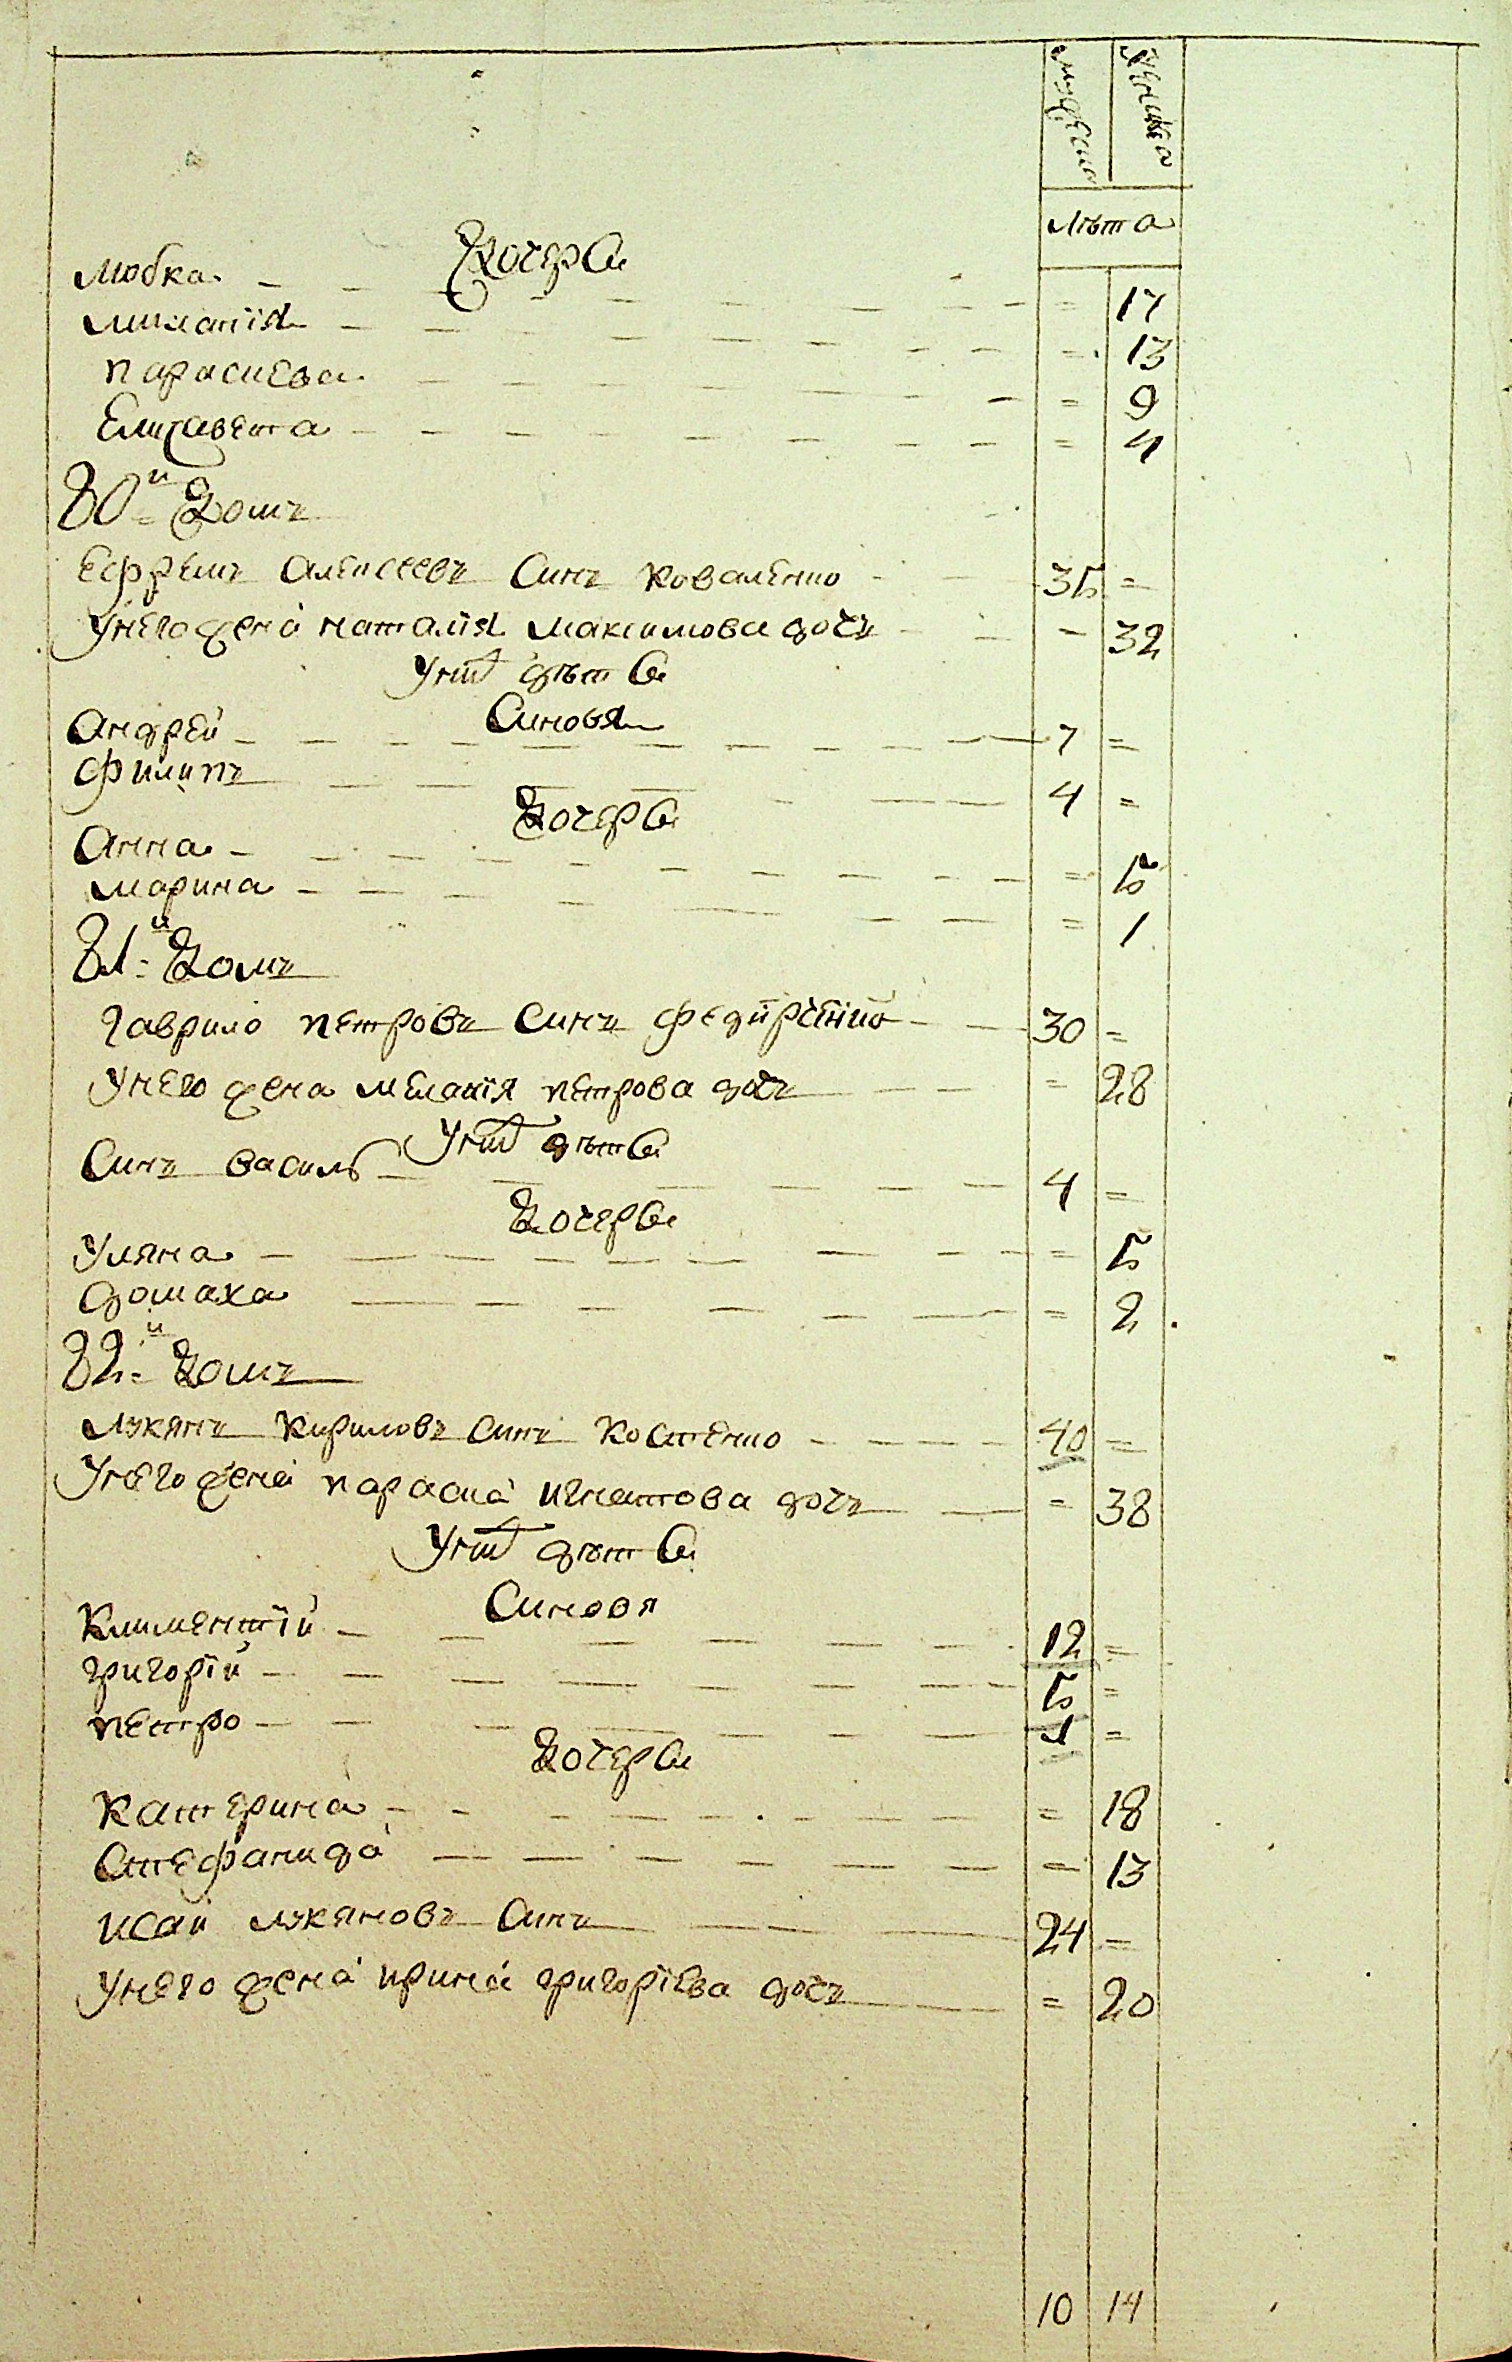 мужеска женска
лѣта
Дочери
Любка = 17
Миланїя = 13
параскева = 9
Елисавета = 4
80й домъ
Ефремъ Алексеевъ Синъ Коваленко 35 =
Унего жена наталїя Максимова дочь = 32
Унихъ дѣти
Синовя
Андрей 7 =
филипъ 4 =
Дочери
Анна = 5
Марина = 1
81й домъ
гаврило петровъ Синъ 30 =
Унего жена меланїя петрова дочь = 28
Унихъ дѣти
Синъ василь 4 =
Дочери
Уляна = 5
домаха = 2
82й домъ
Лукянъ Кириловъ синъ Костенко 40 =
Унего жена параска игнатова дочь = 38
Унихъ дѣти
Синовя
Климентїй 12 =
григорїй 5 =
петро 1 =
Дочери
Катерина = 18
Стефанида = 13
исай лукяновъ Синъ 24 =
Унего жена ирина григорїева дочь = 20
10 14